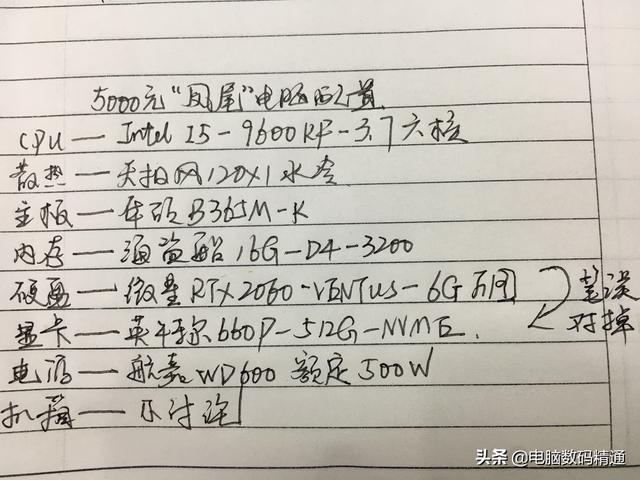 5000元“凤尾”电脑配置
CPU — Intel I5-9600KF-3.7六核
散热 — 大拍风120×1水冷
主板 — 华硕B365M-K
内存 — 海盗船16G-D4-3200
硬盘 — 微星RTX2060-VENTUS-6G万图
显卡 — 英特尔660P-512G-NVME
笔误
对掉
电源 — 航嘉WD600 额定500W
机箱 — 不讨论
头条 @电脑数码精通